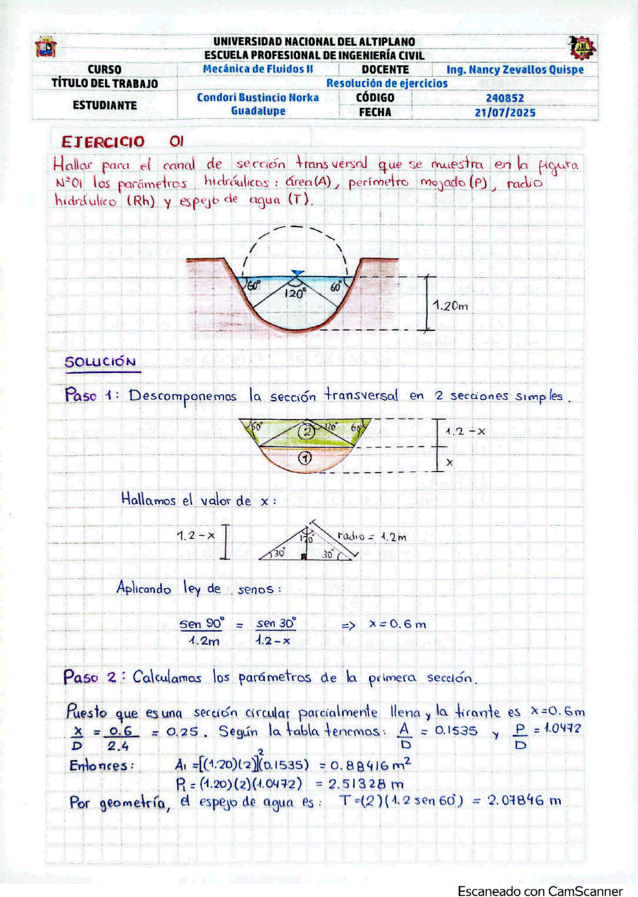 UNIVERSIDAD NACIONAL DEL ALTIPLANO
ESCUELA PROFESIONAL DE INGENIERÍA CIVIL
CURSO Mecánica de Fluidos II DOCENTE Ing. Nancy Zevallos Quispe
TÍTULO DEL TRABAJO Resolución de ejercicios
ESTUDIANTE Condori Bustincio Norka Guadalupe CÓDIGO 240852
FECHA 21/07/2025
EJERCICIO 01
Hallar para el canal de sección transversal que se muestra en la figura
N°01 los parámetros hidráulicos: área(A), perímetro mojado(P), radio
hidráulico (Rh) y espejo de agua (T).
60° 120° 60°
1.20m
SOLUCIÓN
Paso 1: Descomponemos la sección transversal en 2 secciones simples.
60° 2 120° 60° 1.2-x
1 x
Hallamos el valor de x:
1.2-x 120° radio = 1.2m
30° 30°
Aplicando ley de senos:
sen 90°/1.2m = sen 30°/1.2-x => x=0.6 m
Paso 2: Calculamos los parámetros de la primera sección.
Puesto que es una sección circular parcialmente llena y la tirante es x=0.6m
x/D = 0.6/2.4 = 0.25. Según la tabla tenemos: A/D = 0.1535 y P/D = 1.0472
Entonces: A₁ =[(1.20)(2)]²(0.1535) = 0.88416 m²
P₁ = (1.20)(2)(1.0472) = 2.51328 m
Por geometría, el espejo de agua es: T=(2)(1.2 sen 60°) = 2.07846 m
Escaneado con CamScanner